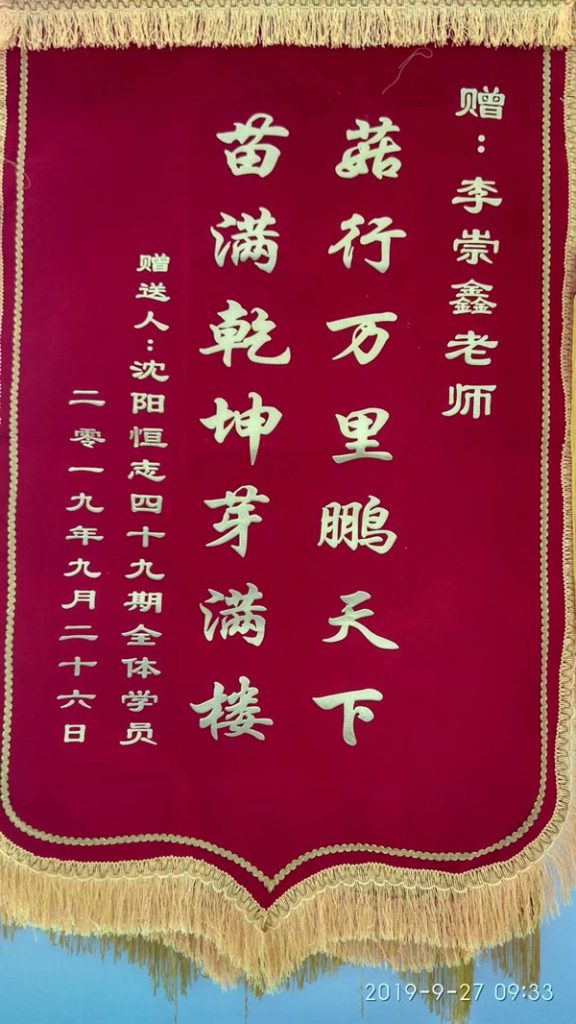 赠：李崇鑫老师
菇行万里鹏天下
苗满乾坤芽满楼
赠送人：沈阳恒志四十九期全体学员
二零一九年九月二十六日
2019-9-27 09:33